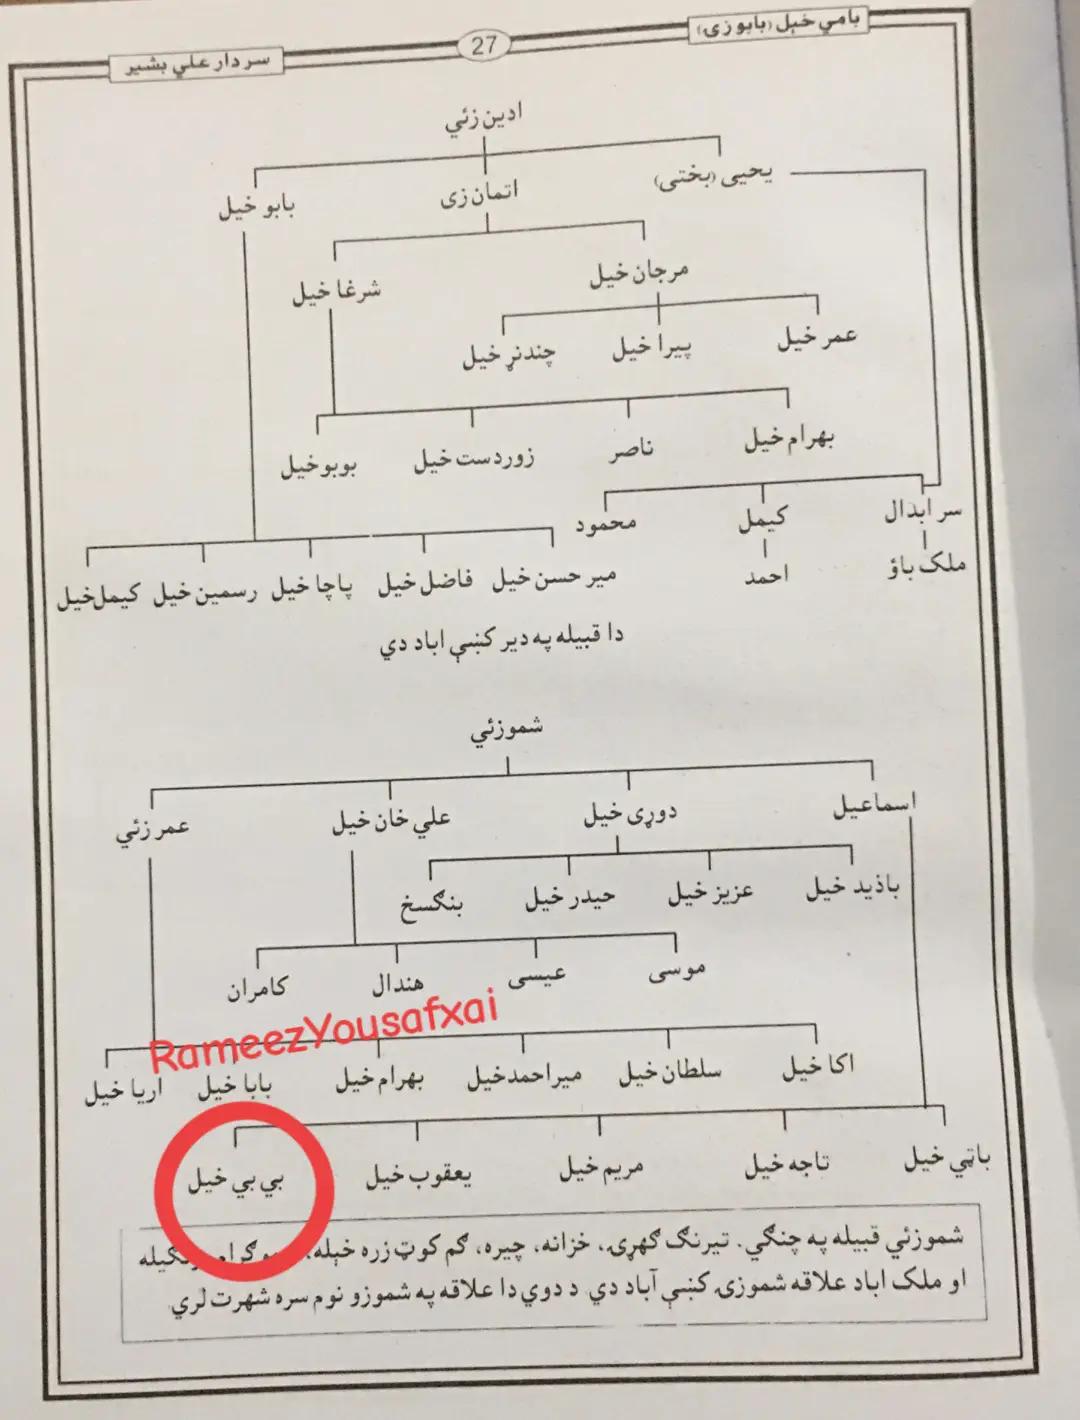 بامي خېل (بابوزی)
27
سردار علي بشير
ادين زئي
يحيی (بختی)
اتمان زی
بابو خيل
مرجان خيل
شرغا خيل
عمر خيل
پيرا خيل
چندنړ خيل
بهرام خيل
ناصر
زوردست خيل
بوبو خيل
سر ابدال
کيمل
محمود
ملک باؤ
احمد
مير حسن خيل
فاضل خيل
پاچا خيل
رسمين خيل
کيمل خيل
دا قبيله په دير کښې اباد دي
شموزئي
اسماعيل
دوړی خيل
علي خان خيل
عمر زئي
باذيد خيل
عزيز خيل
حيدر خيل
بنګسخ
موسی
عيسی
هندال
کامران
RameezYousafxai
اکا خيل
سلطان خيل
ميراحمد خيل
بهرام خيل
بابا خيل
اريا خيل
باټي خيل
تاجه خيل
مريم خيل
يعقوب خيل
بي بي خيل
شموزئي قبيله په چنګي. تيرنګ ګهړۍ، خزانه، چيره، ګم کوټ زره خېله،
او ملک اباد علاقه شموزۍ کښې آباد دي د دوي دا علاقه په شموزو نوم سره شهرت لري